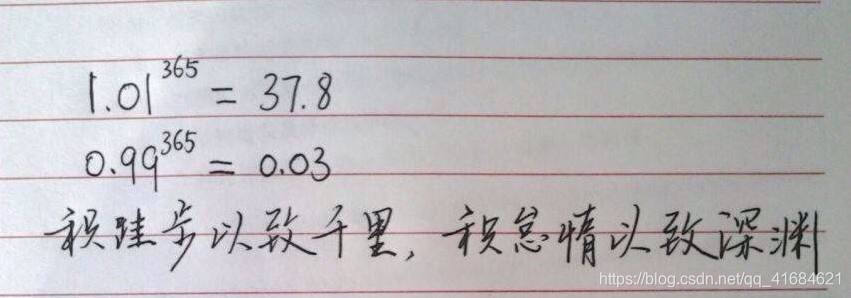 1.01^365 = 37.8
0.99^365 = 0.03
积跬步以致千里,积怠惰以致深渊
https://blog.csdn.net/qq_41684621